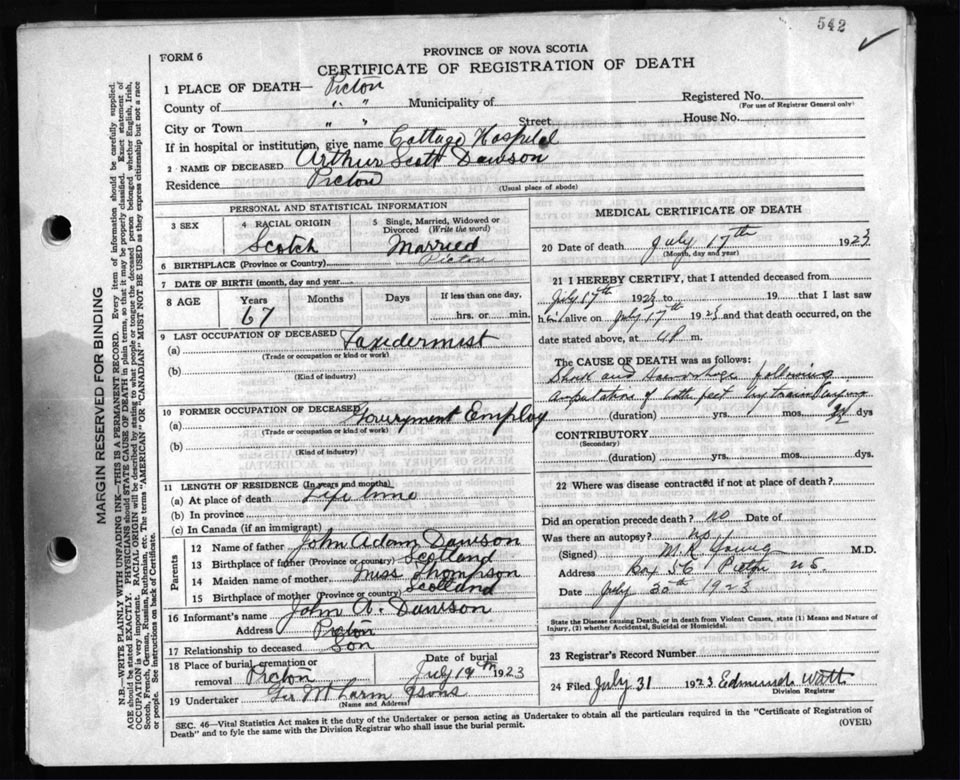 542
PROVINCE OF NOVA SCOTIA
FORM 6
CERTIFICATE OF REGISTRATION OF DEATH
1 PLACE OF DEATH— Picton
County of " " Municipality of Registered No.
(For use of Registrar General only)
City or Town " " Street House No.
If in hospital or institution, give name Cottage Hospital
2 NAME OF DECEASED Arthur Scott Dawson
Residence Picton
(Usual place of abode)
PERSONAL AND STATISTICAL INFORMATION
3 SEX 4 RACIAL ORIGIN Scotch
5 Single, Married, Widowed or Divorced (Write the word) Married
6 BIRTHPLACE (Province or Country) Picton
7 DATE OF BIRTH (month, day and year)
8 AGE Years Months Days If less than one day,
67 hrs. or min.
9 LAST OCCUPATION OF DECEASED
(a) Taxidermist
(Trade or occupation or kind or work)
(b)
(Kind of industry)
10 FORMER OCCUPATION OF DECEASED
(a) Employ
(Trade or occupation or kind of work)
(b)
(Kind of industry)
11 LENGTH OF RESIDENCE (In years and months)
(a) At place of death Life time
(b) In province
(c) In Canada (if an immigrant)
Parents
12 Name of father John Adam Dawson
13 Birthplace of father (Province or country) Scotland
14 Maiden name of mother Miss Thompson
15 Birthplace of mother (Province or country) Scotland
16 Informant's name John A. Dawson
Address Picton
17 Relationship to deceased Son
18 Place of burial, cremation or removal Picton
Date of burial July 19th 1923
19 Undertaker & Sons
(Name and Address)
MEDICAL CERTIFICATE OF DEATH
20 Date of death July 17th 1923
(Month, day and year)
21 I HEREBY CERTIFY, that I attended deceased from
July 17th 1923 to 19 that I last saw
him alive on July 17th 1923 and that death occurred, on the
date stated above, at 4 P m.
The CAUSE OF DEATH was as follows:
Shock and Haemorrhage following
Amputation of both feet by train
(duration) yrs. mos. dys
CONTRIBUTORY
(Secondary)
(duration) yrs. mos. dys.
22 Where was disease contracted if not at place of death?
Did an operation precede death? no Date of
Was there an autopsy? no
(Signed) M.R. Young M.D.
Address Box 56 N.S.
Date July 30th 1923
State the Disease causing Death, or in death from Violent Causes, state (1) Means and Nature of
Injury, (2) whether Accidental, Suicidal or Homicidal.
23 Registrar's Record Number
24 Filed July 31 1923 Edmund Watt
Division Registrar
SEC. 46—Vital Statistics Act makes it the duty of the Undertaker or person acting as Undertaker to obtain all the particulars required in the "Certificate of Registration of
Death" and to fyle the same with the Division Registrar who shall issue the burial permit.
(OVER)
MARGIN RESERVED FOR BINDING
N.B.—WRITE PLAINLY WITH UNFADING INK—THIS IS A PERMANENT RECORD. Every item of information should be carefully supplied.
AGE should be stated EXACTLY. PHYSICIANS should STATE CAUSE OF DEATH in plain terms, so that it may be properly classified. Exact statement of
OCCUPATION is very important. RACIAL ORIGIN will be described by stating to what people or tongue the deceased person belonged whether English, Irish,
Scotch, French, German, Russian, Ruthenian, etc. The terms "AMERICAN" or "CANADIAN" MUST NOT BE USED as they express citizenship but not a race
or people. See instructions on back of Certificate.